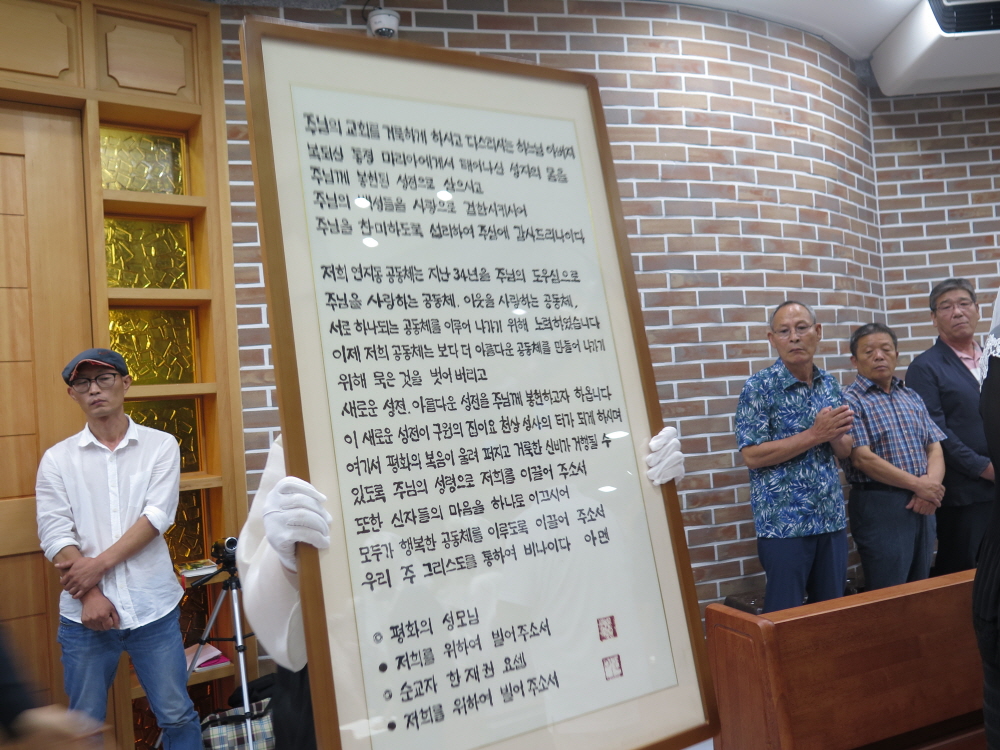 주님의 교회를 거룩하게 하시고 다스리시는 하느님 아버지
복되신 동정 마리아에게서 태어나신 성자의 몸을
주님께 봉헌된 성전으로 삼으시고
주님의 백성들을 사랑으로 결합시키시어
주님을 찬미하도록 섭리하여 주심에 감사드리나이다
저희 연지동 공동체는 지난 34년을 주님의 도우심으로
주님을 사랑하는 공동체, 이웃을 사랑하는 공동체,
서로 하나되는 공동체를 이루어 나가기 위해 노력하였습니다
이제 저희 공동체는 보다 더 아름다운 공동체를 만들어 나가기
위해 묵은 것을 벗어 버리고
새로운 성전, 아름다운 성전을 주님께 봉헌하고자 하옵니다
이 새로운 성전이 구원의 집이요 천상 성사의 터가 되게 하시며
여기서 평화의 복음이 울려 퍼지고 거룩한 신비가 거행될 수
있도록 주님의 성령으로 저희를 이끌어 주소서
또한 신자들의 마음을 하나로 이끄시어
모두가 행복한 공동체를 이루도록 이끌어 주소서
우리 주 그리스도를 통하여 비나이다 아멘
◎ 평화의 성모님
● 저희를 위하여 빌어주소서
◎ 순교자 한재권 요셉
● 저희를 위하여 빌어주소서